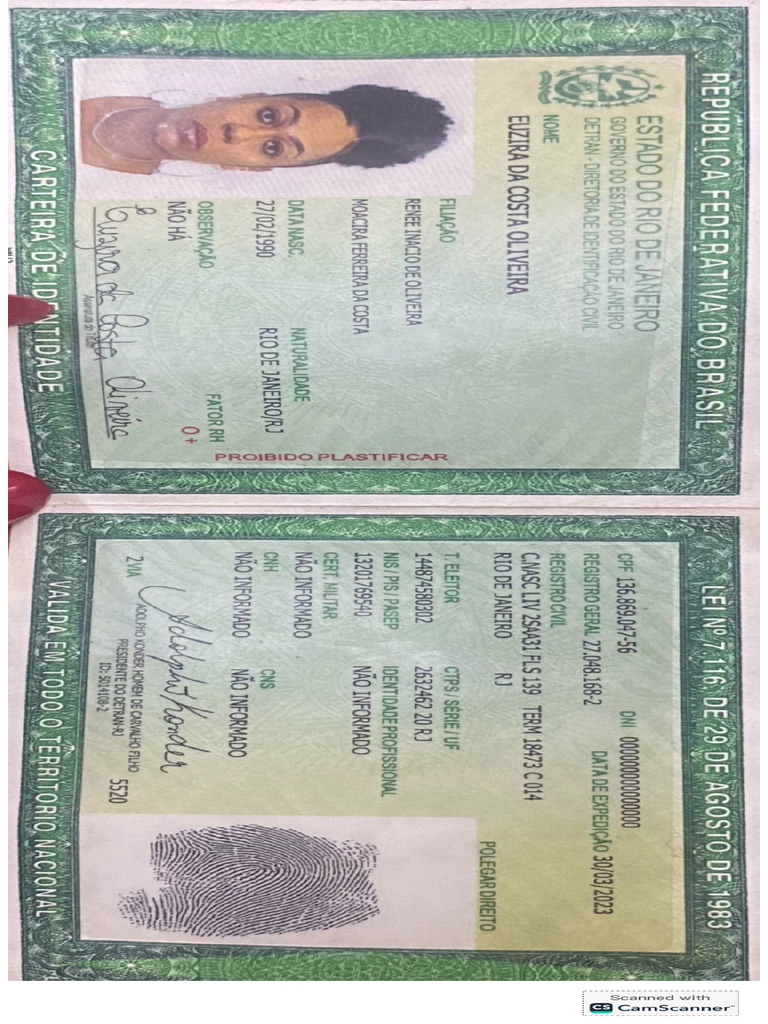 REPÚBLICA FEDERATIVA DO BRASIL
ESTADO DO RIO DE JANEIRO
GOVERNO DO ESTADO DO RIO DE JANEIRO
DETRAN - DIRETORIA DE IDENTIFICAÇÃO CIVIL
NOME
EUZIRA DA COSTA OLIVEIRA
FILIAÇÃO
RENEE INACIO DE OLIVEIRA
MOACIRA FERREIRA DA COSTA
DATA NASC. NATURALIDADE
27/02/1990 RIO DE JANEIRO/RJ
OBSERVAÇÃO FATOR RH
NÃO HÁ O+
Euzira da Costa Oliveira
Assinatura do Titular
CARTEIRA DE IDENTIDADE
PROIBIDO PLASTIFICAR
LEI Nº 7.116, DE 29 DE AGOSTO DE 1983
CPF 136.869.047-56 DNI 000000000000000
REGISTRO GERAL 27.048.168-2 DATA DE EXPEDIÇÃO 30/03/2023
REGISTRO CIVIL
C.NASC LIV 2SAA31 FLS 139 TERM 18473 C 014
RIO DE JANEIRO RJ
T. ELEITOR CTPS / SÉRIE / UF
144874580302 2632462 20 RJ
NIS / PIS / PASEP IDENTIDADE PROFISSIONAL
13201769540 NÃO INFORMADO
CERT. MILITAR
NÃO INFORMADO
CNH CNS
NÃO INFORMADO NÃO INFORMADO
POLEGAR DIREITO
2 VIA
ADOLPHO KONDER HOMEM DE CARVALHO FILHO
PRESIDENTE DO DETRAN-RJ
ID: 5014108-2
5520
VÁLIDA EM TODO O TERRITÓRIO NACIONAL
Scanned with
CS CamScanner